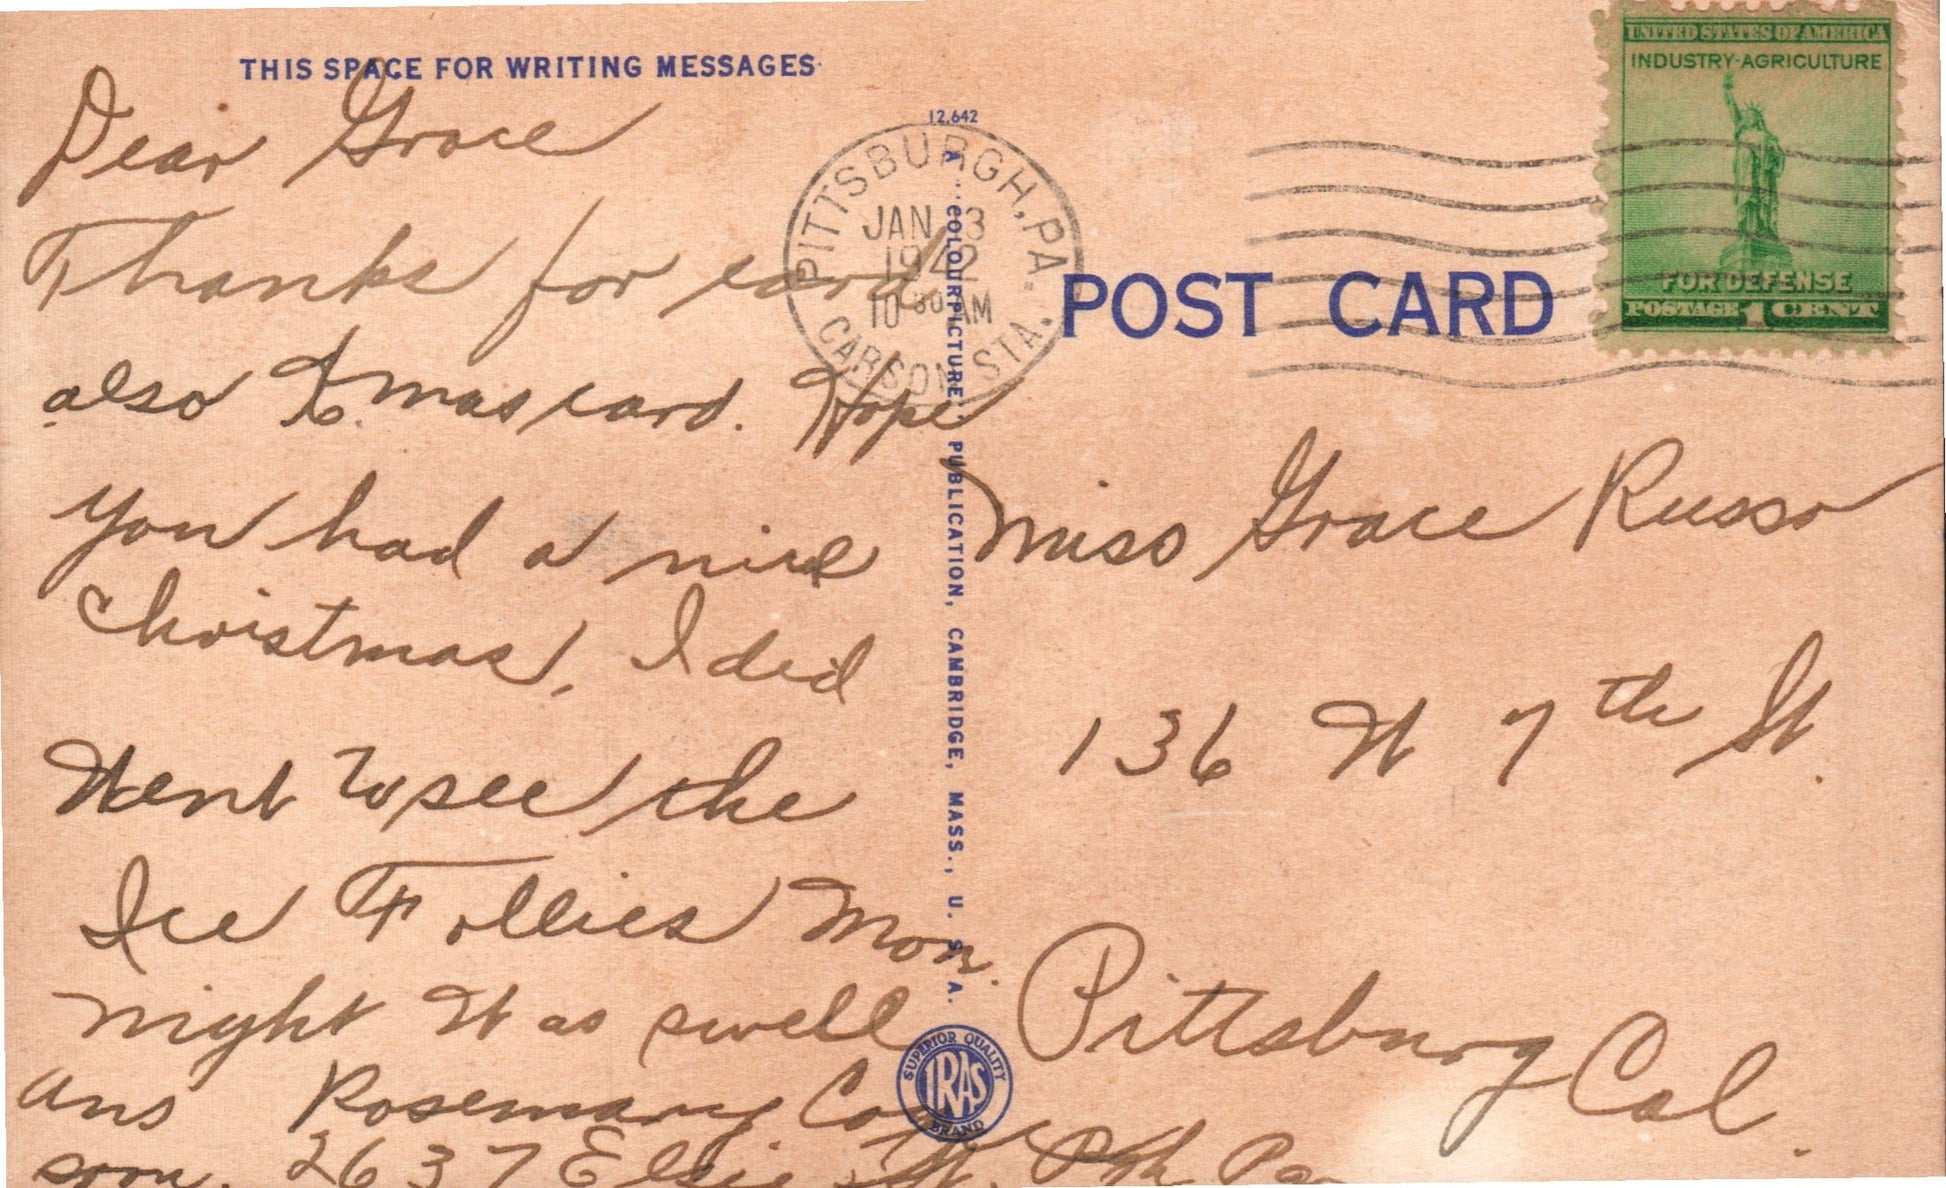 THIS SPACE FOR WRITING MESSAGES
Dear Grace
Thanks for card
also Xmas card. Hope
you had a nice
Christmas, I did
Went to see the
Ice Follies Mon.
night It as swell
ans Rosemary
soon. 2637 Elsie St. Pgh Pa
12,642
A "COLOURPICTURE" PUBLICATION, CAMBRIDGE, MASS., U. S. A.
SUPERIOR QUALITY
BRAND
PITTSBURGH, PA.
JAN 3
1942
10 30 AM
CARSON STA.
UNITED STATES OF AMERICA
INDUSTRY-AGRICULTURE
FOR DEFENSE
POSTAGE 1 CENT
POST CARD
Miss Grace Russo
136 W 7th St.
Pittsburg Cal.